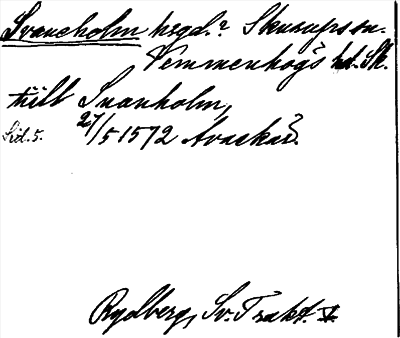 Svaneholm hrgd.? Skurups sn.
Vemmenhögs hd. Sk.
till Suanholm,
Sid. 5. 27/5 1572 Avaskär?
Rydberg, Sv. Trakt. V.